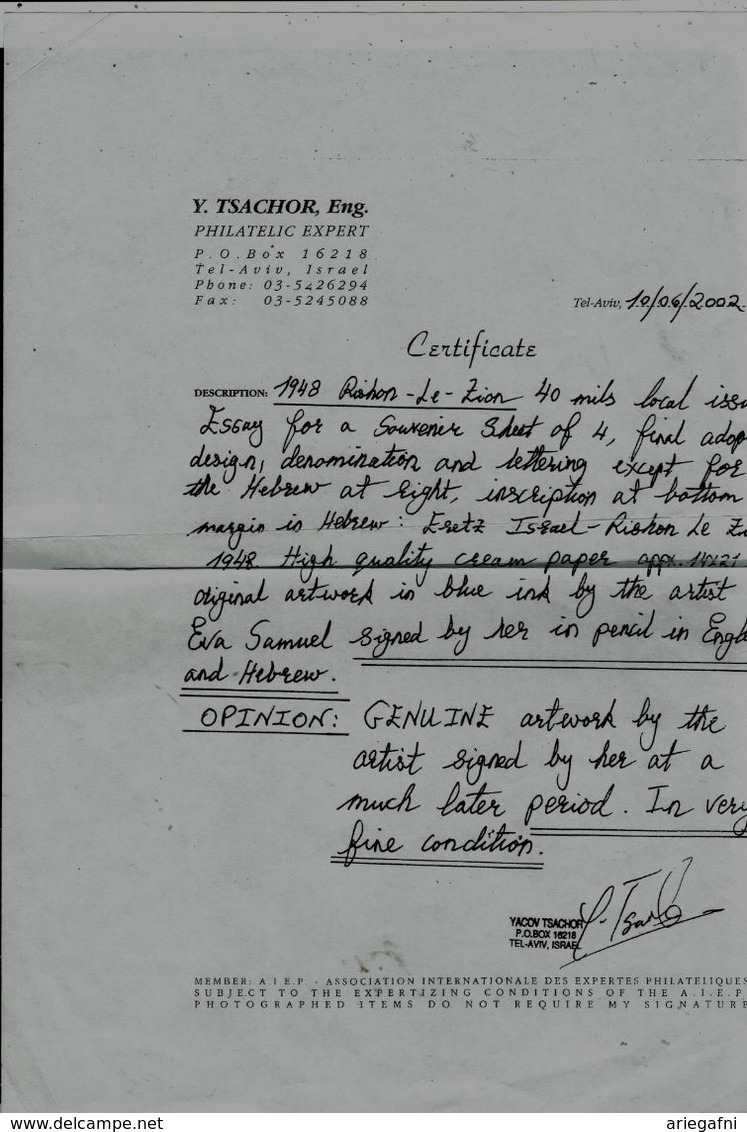 Y. TSACHOR, Eng.
PHILATELIC EXPERT
P.O.Box 16218
Tel-Aviv, Israel
Phone: 03-5426294
Fax: 03-5245088
Tel-Aviv, 10/06/2002
Certificate
DESCRIPTION: 1948 Rishon-Le-Zion 40 mils local issu
Essay for a Souvenir Sheet of 4, final adop
design, denomination and lettering except for
the Hebrew at right, inscription at bottom
margin in Hebrew: Eretz Israel-Rishon Le Zi
1948. High quality cream paper appx. 14x21
original artwork in blue ink by the artist
Eva Samuel signed by her in pencil in Engl
and Hebrew.
OPINION: GENUINE artwork by the
artist signed by her at a
much later period. In very
fine condition.
YACOV TSACHOR
P.O.BOX 16218
TEL-AVIV, ISRAEL
MEMBER: A.I.E.P. - ASSOCIATION INTERNATIONALE DES EXPERTES PHILATELIQUES
SUBJECT TO THE EXPERTIZING CONDITIONS OF THE A.I.E.P
PHOTOGRAPHED ITEMS DO NOT REQUIRE MY SIGNATURE
www.delcampe.net
ariegafni